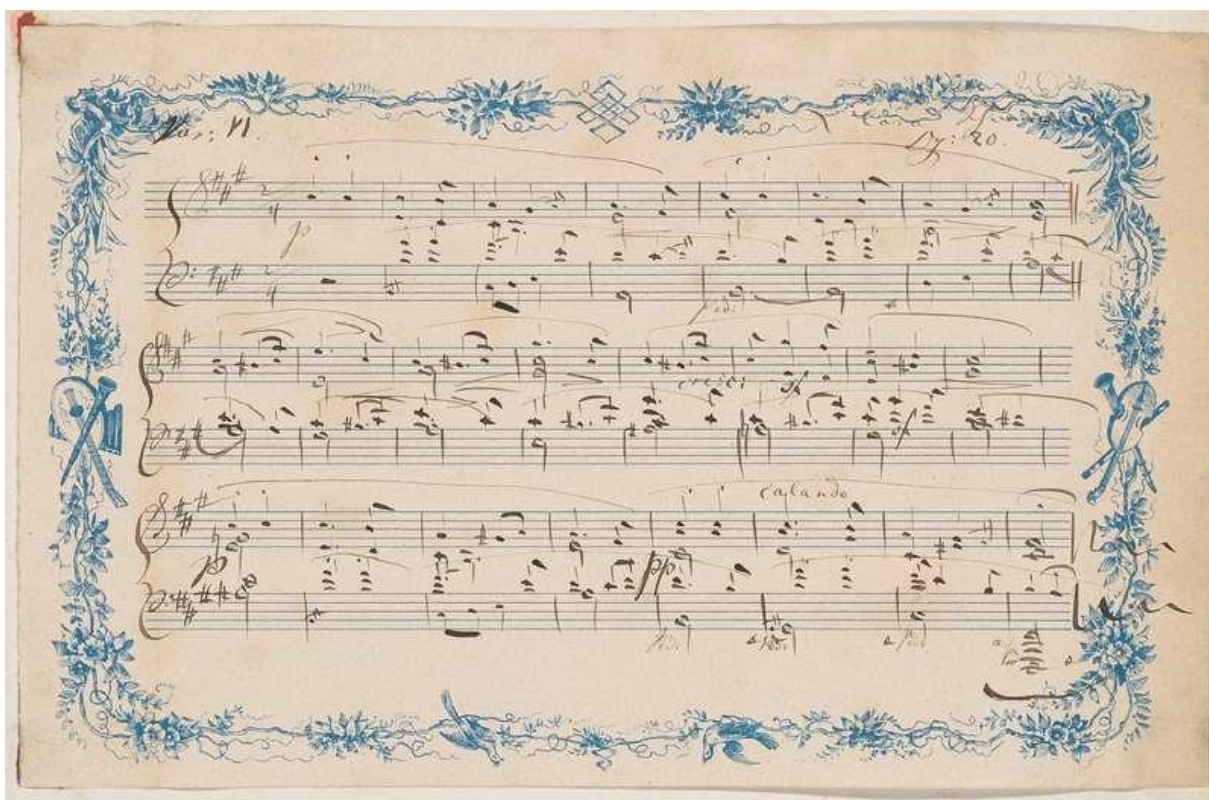 Var: VI.
Op: 20.
2 4
p
2 4
Ped:
cresc:
sf
calando
p
pp
Ped:
Ped:
Ped: